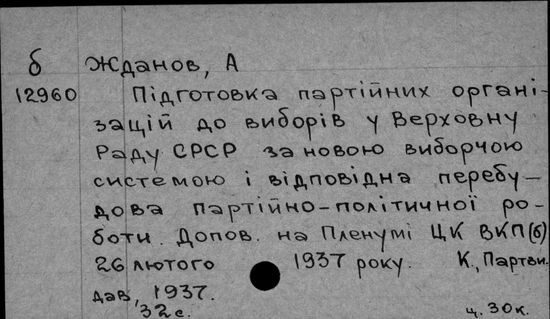 б Жданов, А
12960 Підготовка партійних органі-
зацій до виборів у Верховну
Раду СРСР за новою виборчою
системою і відповідна перебу-
дова партійно-політичної ро-
боти. Допов. на Пленумі ЦК ВКП(б)
26 лютого 1937 року. К., Партви.
дав, 1937.
32 с. ц. 30к.